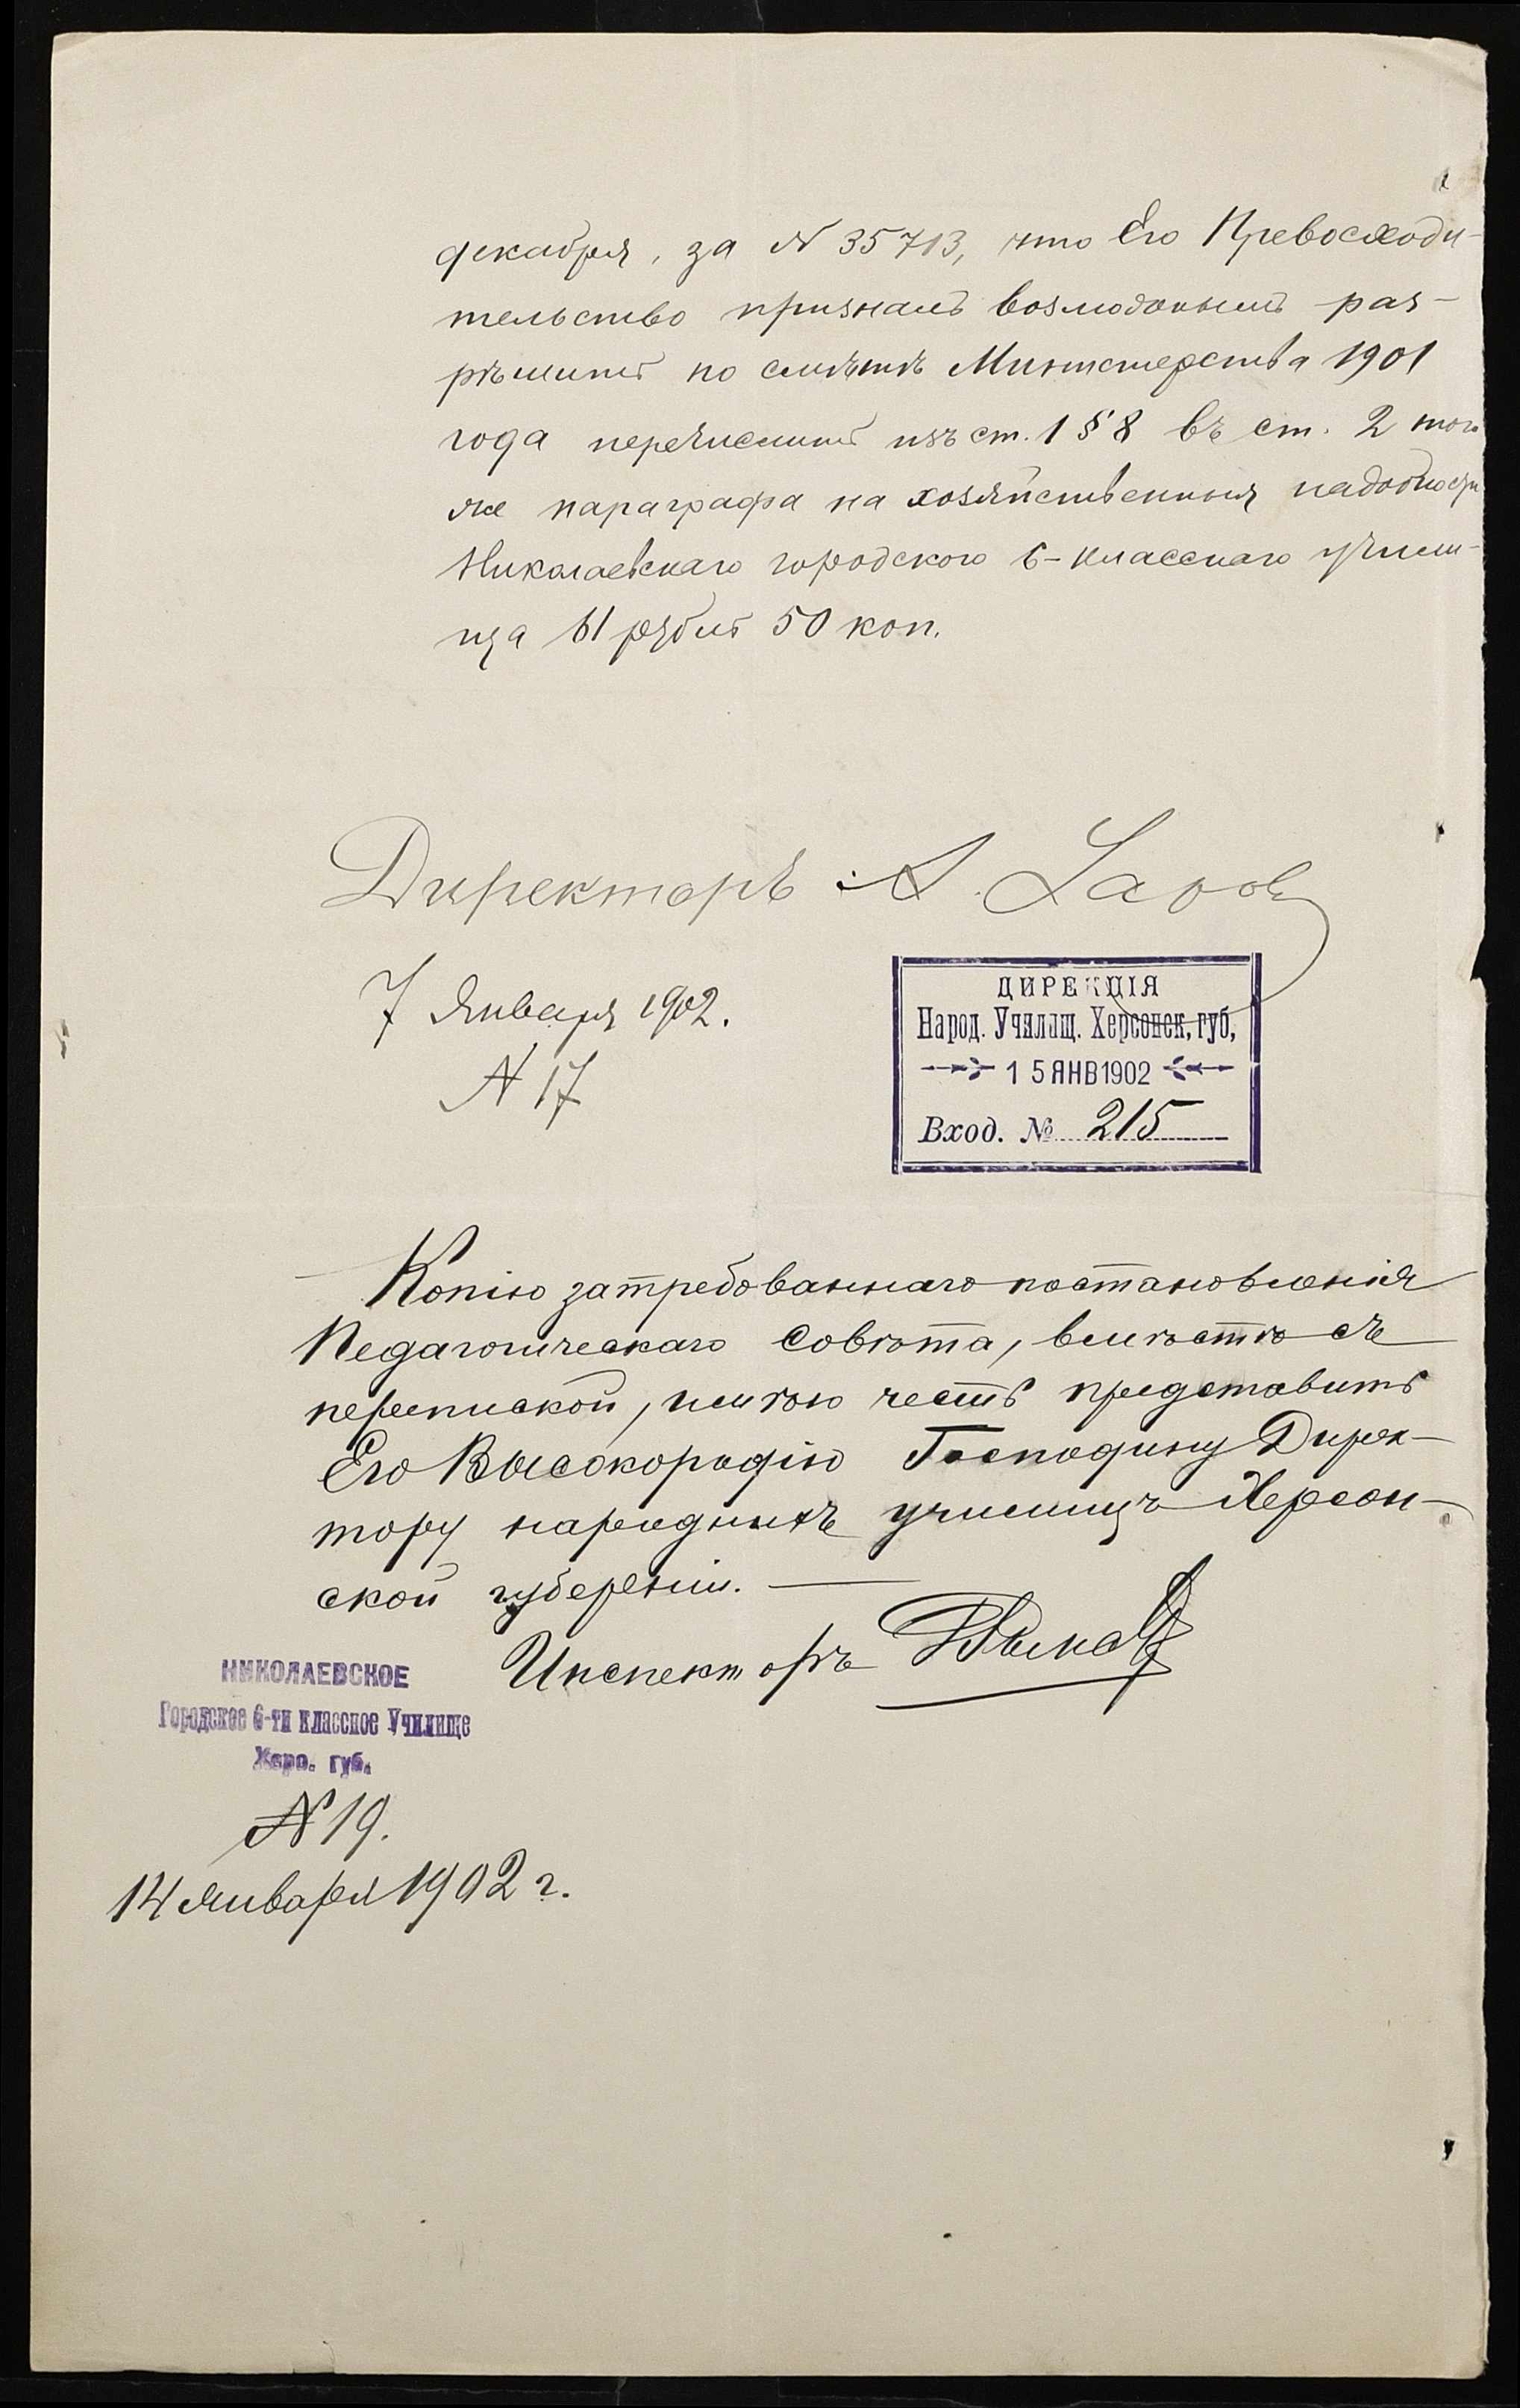 декабря, за № 35713, что Его Превосходи-
тельство призналъ возможнымъ раз-
рѣшить по смѣтѣ Министерства 1901
года перечислить изъ ст. 1 § 8 въ ст. 2 того
же параграфа на хозяйственныя надобности
Николаевскаго городского 6-класснаго учили-
ща 61 рубль 50 коп.
Директоръ А.
7 Января 1902.
№ 17
ДИРЕКЦІЯ
Народ. Училищ. Херсонск. губ.
15 ЯНВ 1902
Вход. № 215
Копію затребованнаго постановленія
Педагогическаго Совѣта, вмѣстѣ съ
перепиской, имѣю честь представить
Его Высокородію Господину Дирек-
тору народныхъ училищъ Херсон-
ской губерніи.
Инспекторъ
НИКОЛАЕВСКОЕ
Городское 6-ти классное Училище
Херс. губ.
№ 19.
14 января 1902 г.